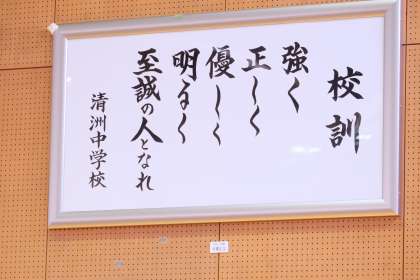 校訓
強く
正しく
優しく
明るく
至誠の人となれ
清洲中学校